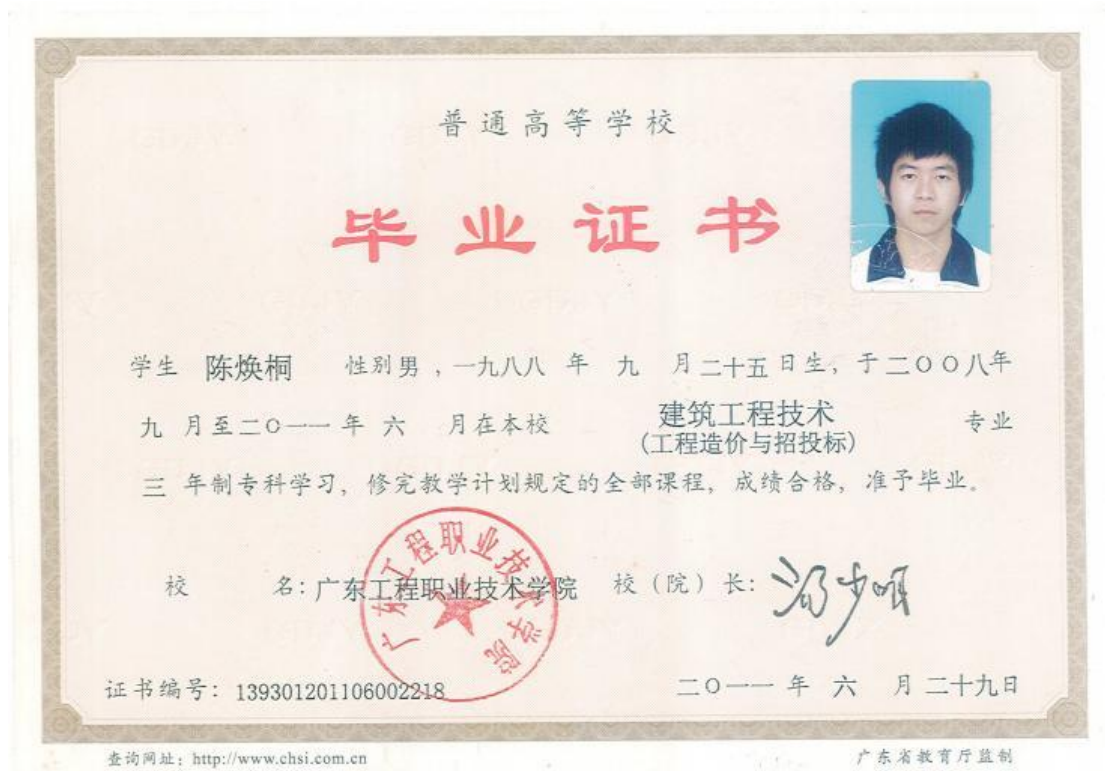 普通高等学校
毕业证书
学生 陈焕桐 性别男，一九八八 年 九 月二十五日生，于二〇〇八年
九 月至二〇一一 年 六 月在本校 建筑工程技术 专业
(工程造价与招投标)
三 年制专科学习，修完教学计划规定的全部课程，成绩合格，准予毕业。
校 名：广东工程职业技术学院 校（院）长：
广东工程职业技术学院
证书编号：139301201106002218 二〇一一 年 六 月 二十九日
查询网址：http://www.chsi.com.cn 广东省教育厅监制